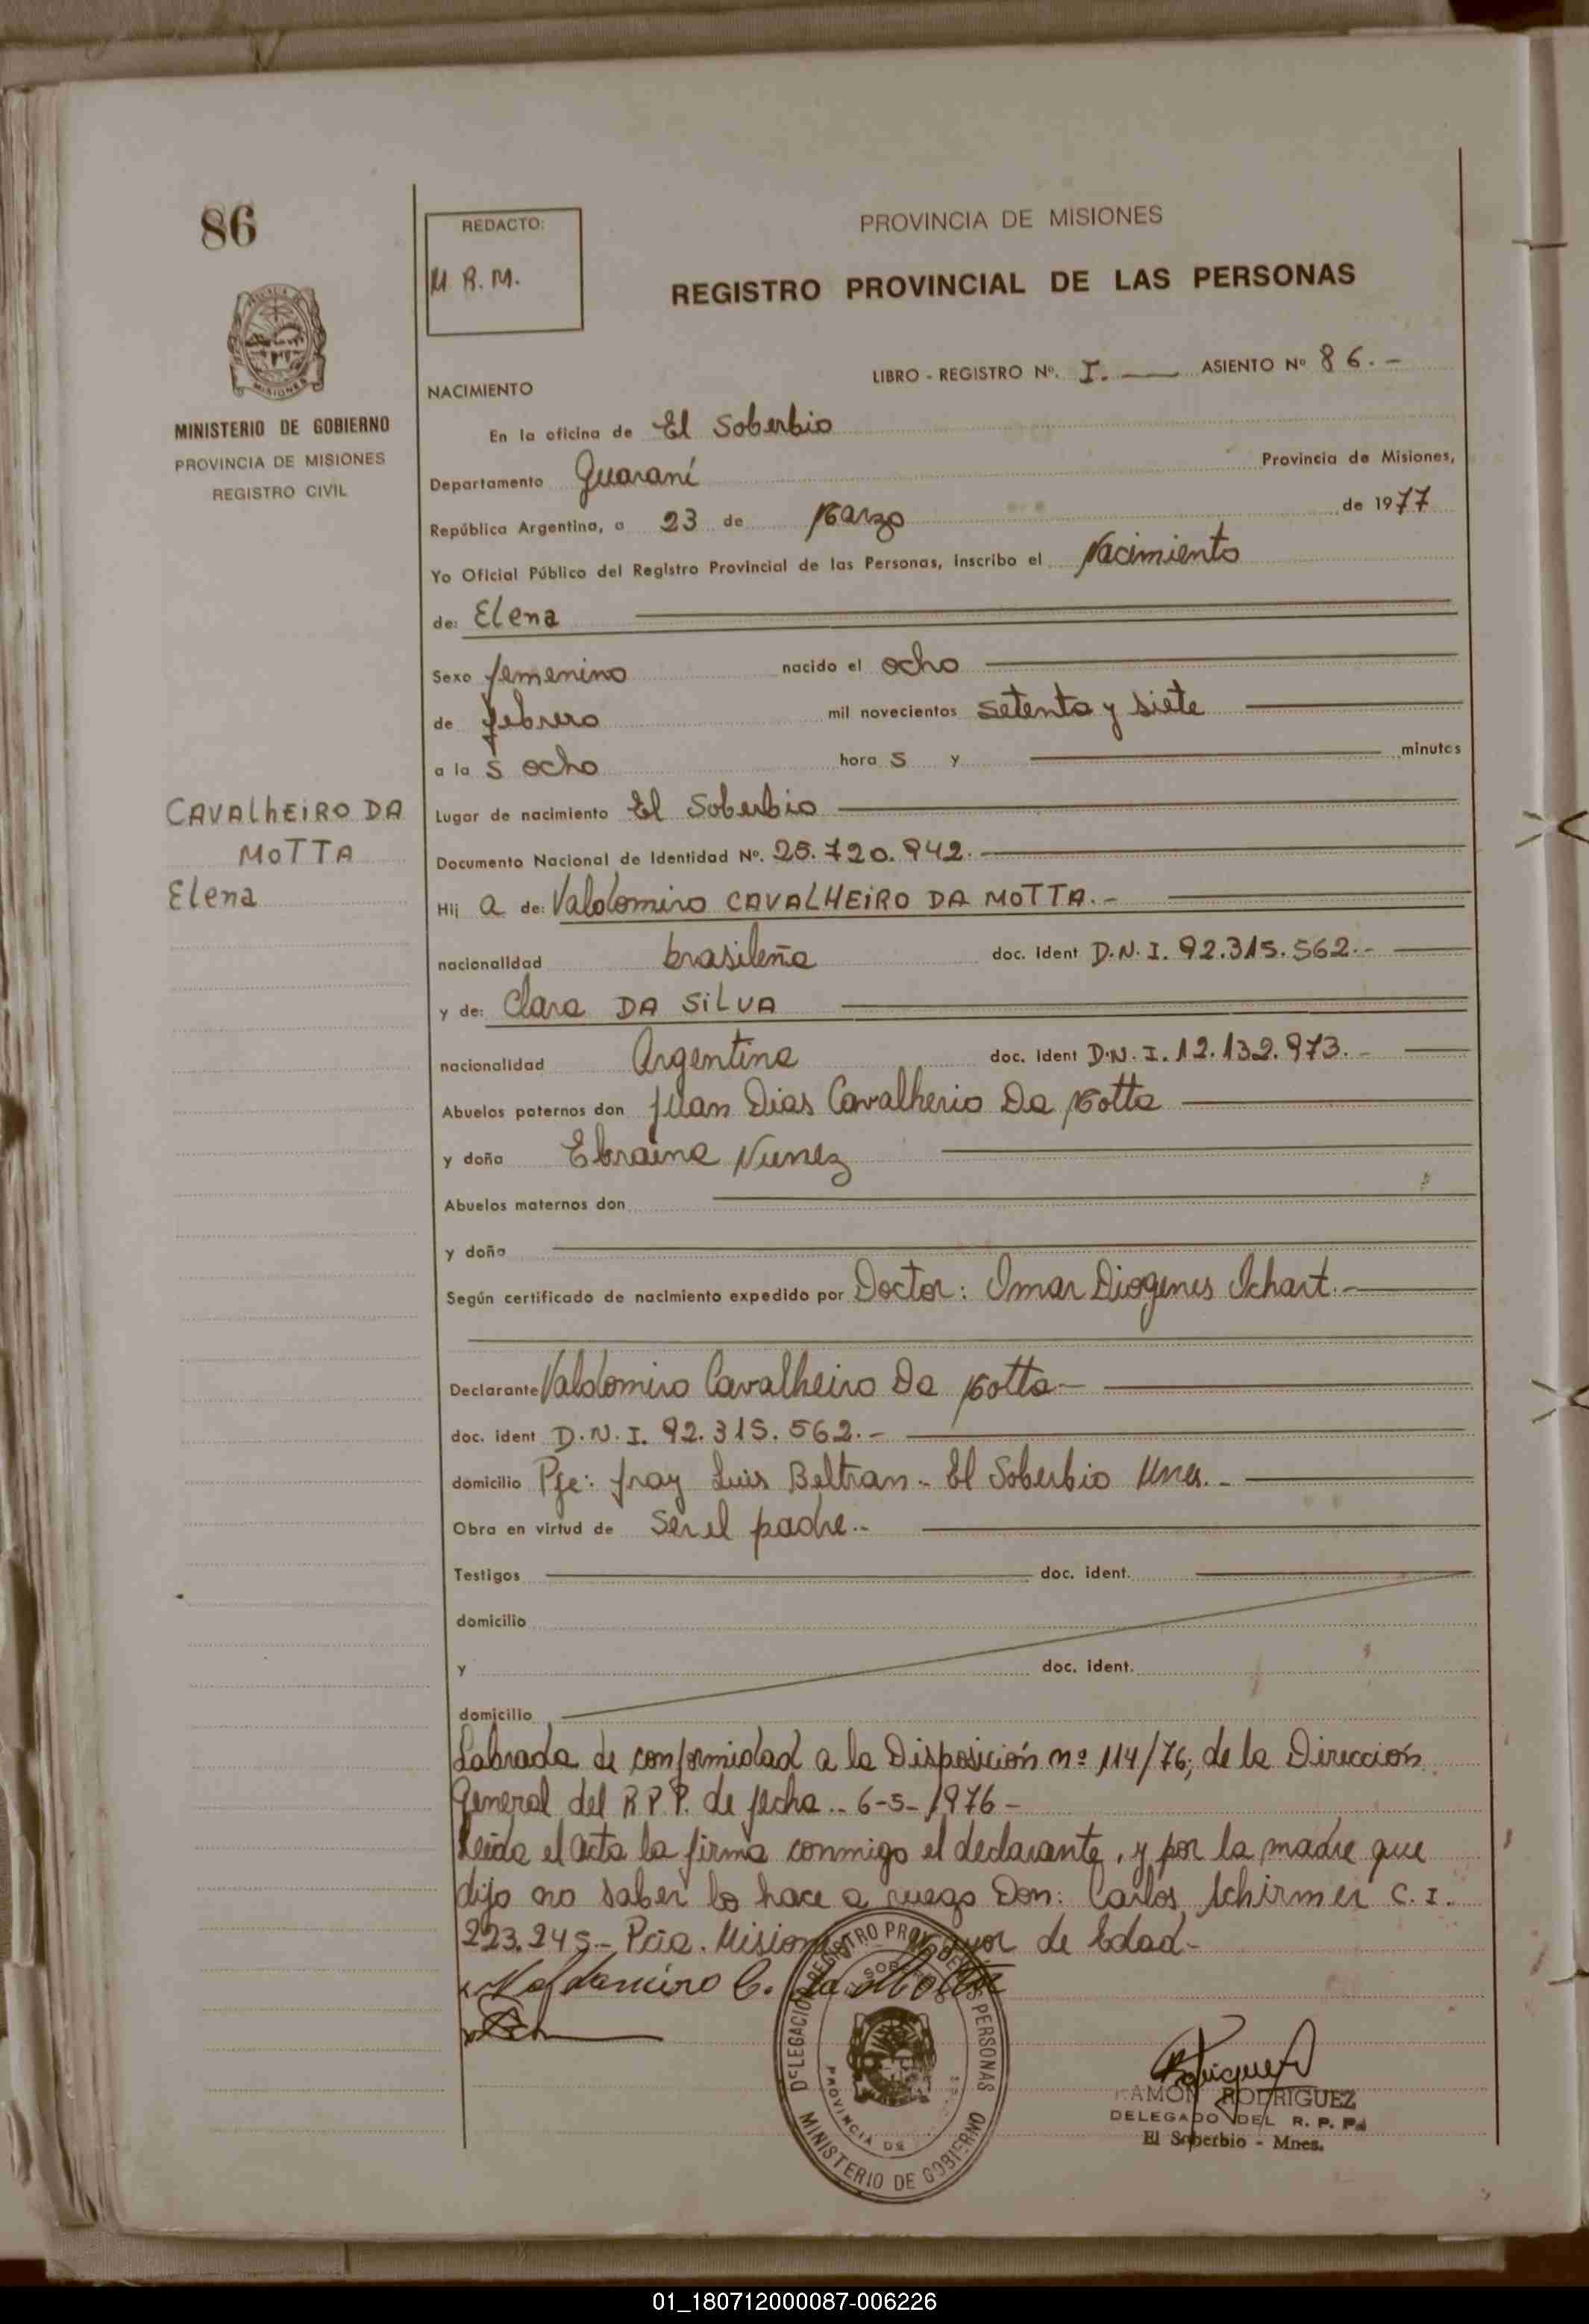 86
REDACTO:
M. R. M.
PROVINCIA DE MISIONES
REGISTRO PROVINCIAL DE LAS PERSONAS
MINISTERIO DE GOBIERNO
PROVINCIA DE MISIONES
REGISTRO CIVIL
LIBRO - REGISTRO Nº. I. ASIENTO Nº 86.-
NACIMIENTO
En la oficina de El Soberbio
Departamento Guaraní Provincia de Misiones,
República Argentina, a 23 de Marzo de 1977
Yo Oficial Público del Registro Provincial de las Personas, inscribo el Nacimiento
de: Elena
Sexo femenino nacido el ocho
de febrero mil novecientos setenta y siete
a la s ocho hora s y minutos
CAVALHEIRO DA
MOTTA
Elena
Lugar de nacimiento El Soberbio
Documento Nacional de Identidad Nº. 25.720.942.
Hij a de: Valdomiro CAVALHEIRO DA MOTTA.-
nacionalidad brasileña doc. ident D.N.I. 92.315.562.-
y de: Clara DA SILVA
nacionalidad Argentina doc. ident D.N.I. 12.132.973.-
Abuelos paternos don Juan Dias Cavalherio Da Motta
y doña Ebraina Nunez
Abuelos maternos don
y doña
Según certificado de nacimiento expedido por Doctor: Omar Diogenes Ichart.-
Declarante Valdomiro Cavalheiro Da Motta-
doc. ident D.N.I. 92.315.562.-
domicilio Pje: fray Luis Beltran - El Soberbio Mnes.-
Obra en virtud de ser el padre.-
Testigos doc. ident.
domicilio
y doc. ident.
domicilio
Labrada de conformidad a la Disposición nº 114/76; de la Dirección
General del R.P.P. de fecha.. 6-5-1976-
Leida el acta la firma conmigo el declarante, y por la madre que
dijo no saber lo hace a ruego Don: Carlos Schirmer C.I.
223.245- Pcia. de Edad-
Valdamiro C. da Motta
DELEGACION REGISTRO PROV. DE LAS PERSONAS
EL SOBERBIO
PROVINCIA DE
MINISTERIO DE GOBIERNO
RAMON RODRIGUEZ
DELEGADO DEL R. P. P.
El Soberbio - Mnes.
01_180712000087-006226